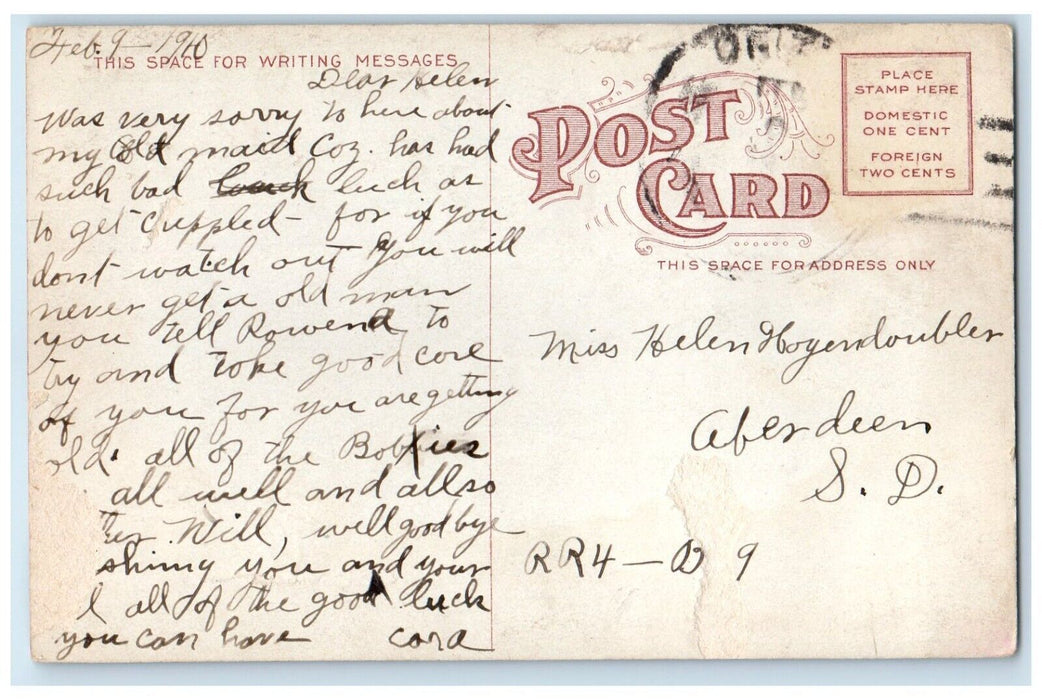 Feb. 9 - 1910
THIS SPACE FOR WRITING MESSAGES
Dear Helen
Was very sorry to here about
my old maid Coz. has had
such bad luck as
to get cuppled - for if you
dont watch out you will
never get a old man
you tell Rowena to
try and take good care
of you for you are getting
old. all of the Bobbies
all well and allso
Will, well good bye
you and your
all of the good luck
you can have Cora
POST
CARD
PLACE
STAMP HERE
DOMESTIC
ONE CENT
FOREIGN
TWO CENTS
THIS SPACE FOR ADDRESS ONLY
Miss Helen Hogendoubler
Aberdeen
S. D.
RR4 - B 9